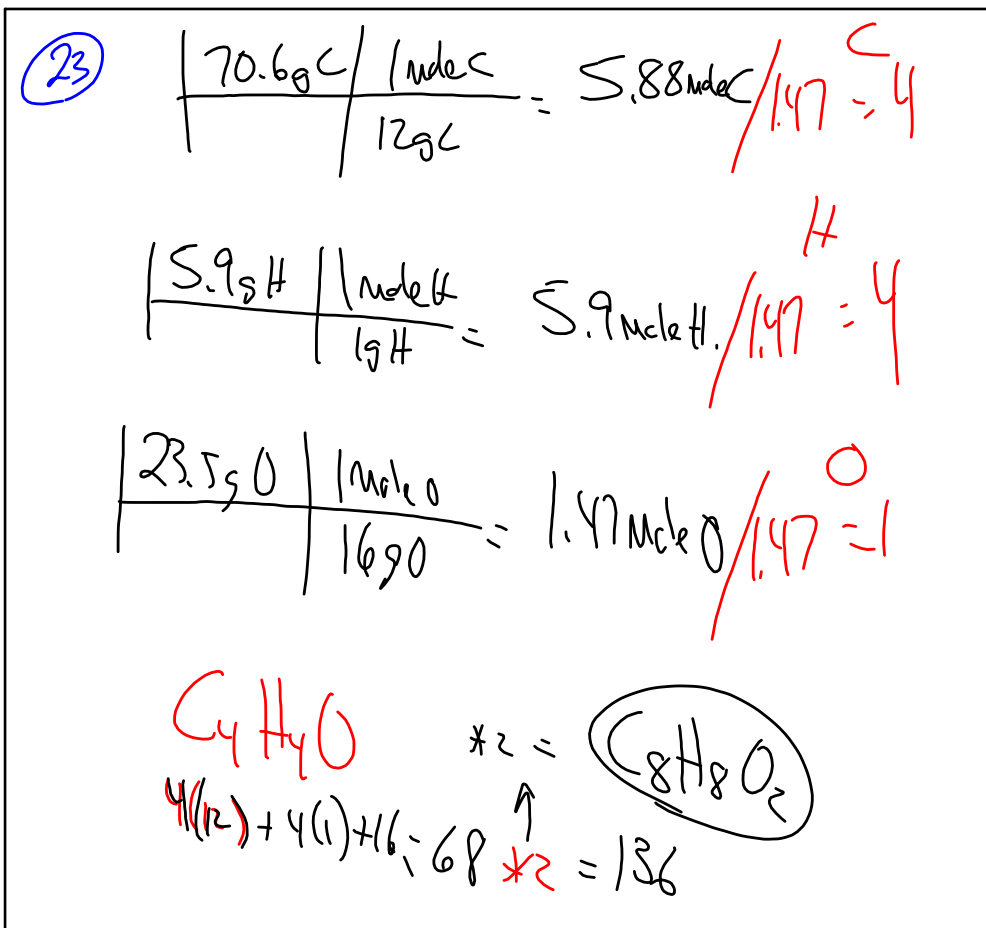 23
70.6gC | 1 moleC
12gC = 5.88moleC/1.47 = 4 C
5.9gH | 1 moleH
1gH = 5.9moleH./1.47 = 4 H
23.5gO | 1moleO
16gO = 1.47moleO/1.47 = 1 O
C₄H₄O *2 = C₈H₈O₂
4(12)+4(1)+16=68 *2 = 136